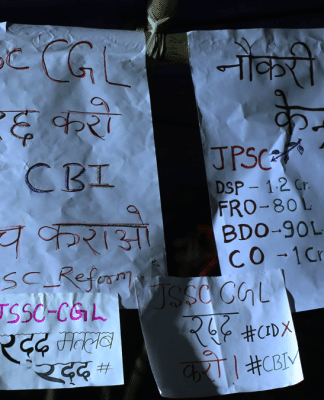 SC CGL
रद्द करो
CBI
कराओ
SC_Reform
JSSC-CGL
रद्द मतलब
रद्द #
नौकरी
के
JPSC
DSP - 1.2 Cr
FRO - 80L
BDO → 90L
CO → 1 Cr
JSSC CGL
रद्द #CID X
करो। #CBI✓